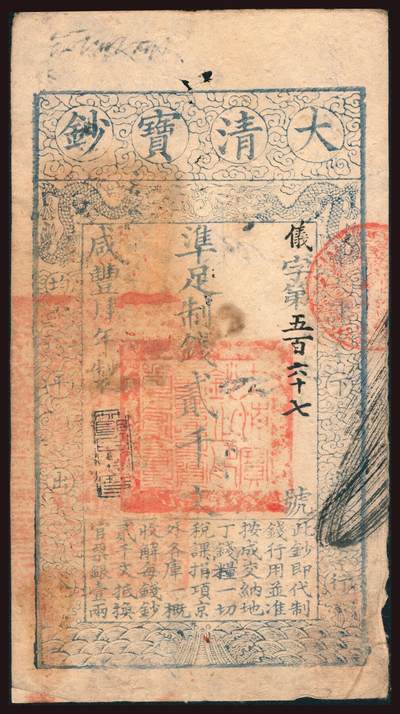 大清寶鈔
儀字第五百六十七號
準足制錢貳千文
咸豐肆年製
此鈔即代制
錢行用並准
按成交納地
丁錢糧一切
稅課捐項京
外各庫一概
收解每錢鈔
貳千文抵換
官票銀壹兩
天下
行
均平出